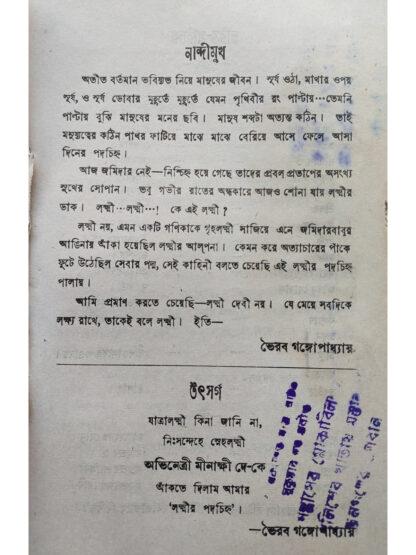 নান্দীমুখ
অতীত বর্তমান ভবিষ্যত নিয়ে মানুষের জীবন। সূর্য ওঠা, মাথার ওপর
সূর্য, ও সূর্য ডোবার মুহূর্তে মুহূর্তে যেমন পৃথিবীর রং পাল্টায়···তেমনি
পাল্টায় বুঝি মানুষের মনের ছবি। মানুষ শব্দটা অত্যন্ত কঠিন। তাই
মনুষ্যত্বের কঠিন পাথর ফাটিয়ে মাঝে মাঝে বেরিয়ে আসে ফেলে আসা
দিনের পদচিহ্ন।
আজ জমিদার নেই—নিশ্চিহ্ন হয়ে গেছে তাদের প্রবল প্রতাপের অসংখ্য
সুখের সোপান। তবু গভীর রাতের অন্ধকারে আজও শোনা যায় লক্ষ্মীর
ডাক। লক্ষ্মী···লক্ষ্মী···! কে এই লক্ষ্মী?
লক্ষ্মী নয়, এমন একটি গণিকাকে গৃহলক্ষ্মী সাজিয়ে এনে জমিদারবাবুর
আঙিনায় আঁকা হয়েছিল লক্ষ্মীর আলপনা। কেমন করে অত্যাচারের পাঁকে
ফুটে উঠেছিল সেবার পদ্ম, সেই কাহিনী বলতে চেয়েছি এই লক্ষ্মীর পদচিহ্ন
পালায়।
আমি প্রমাণ করতে চেয়েছি—লক্ষ্মী দেবী নয়। যে মেয়ে সবদিকে
লক্ষ্য রাখে, তাকেই বলে লক্ষ্মী। ইতি—
ভৈরব গঙ্গোপাধ্যায়
উৎসর্গ
যাত্রালক্ষ্মী কিনা জানি না,
নিঃসন্দেহে স্নেহলক্ষ্মী
অভিনেত্রী মীনাক্ষী দে-কে
আঁকতে দিলাম আমার
'লক্ষ্মীর পদচিহ্ন'।
—ভৈরব গঙ্গোপাধ্যায়